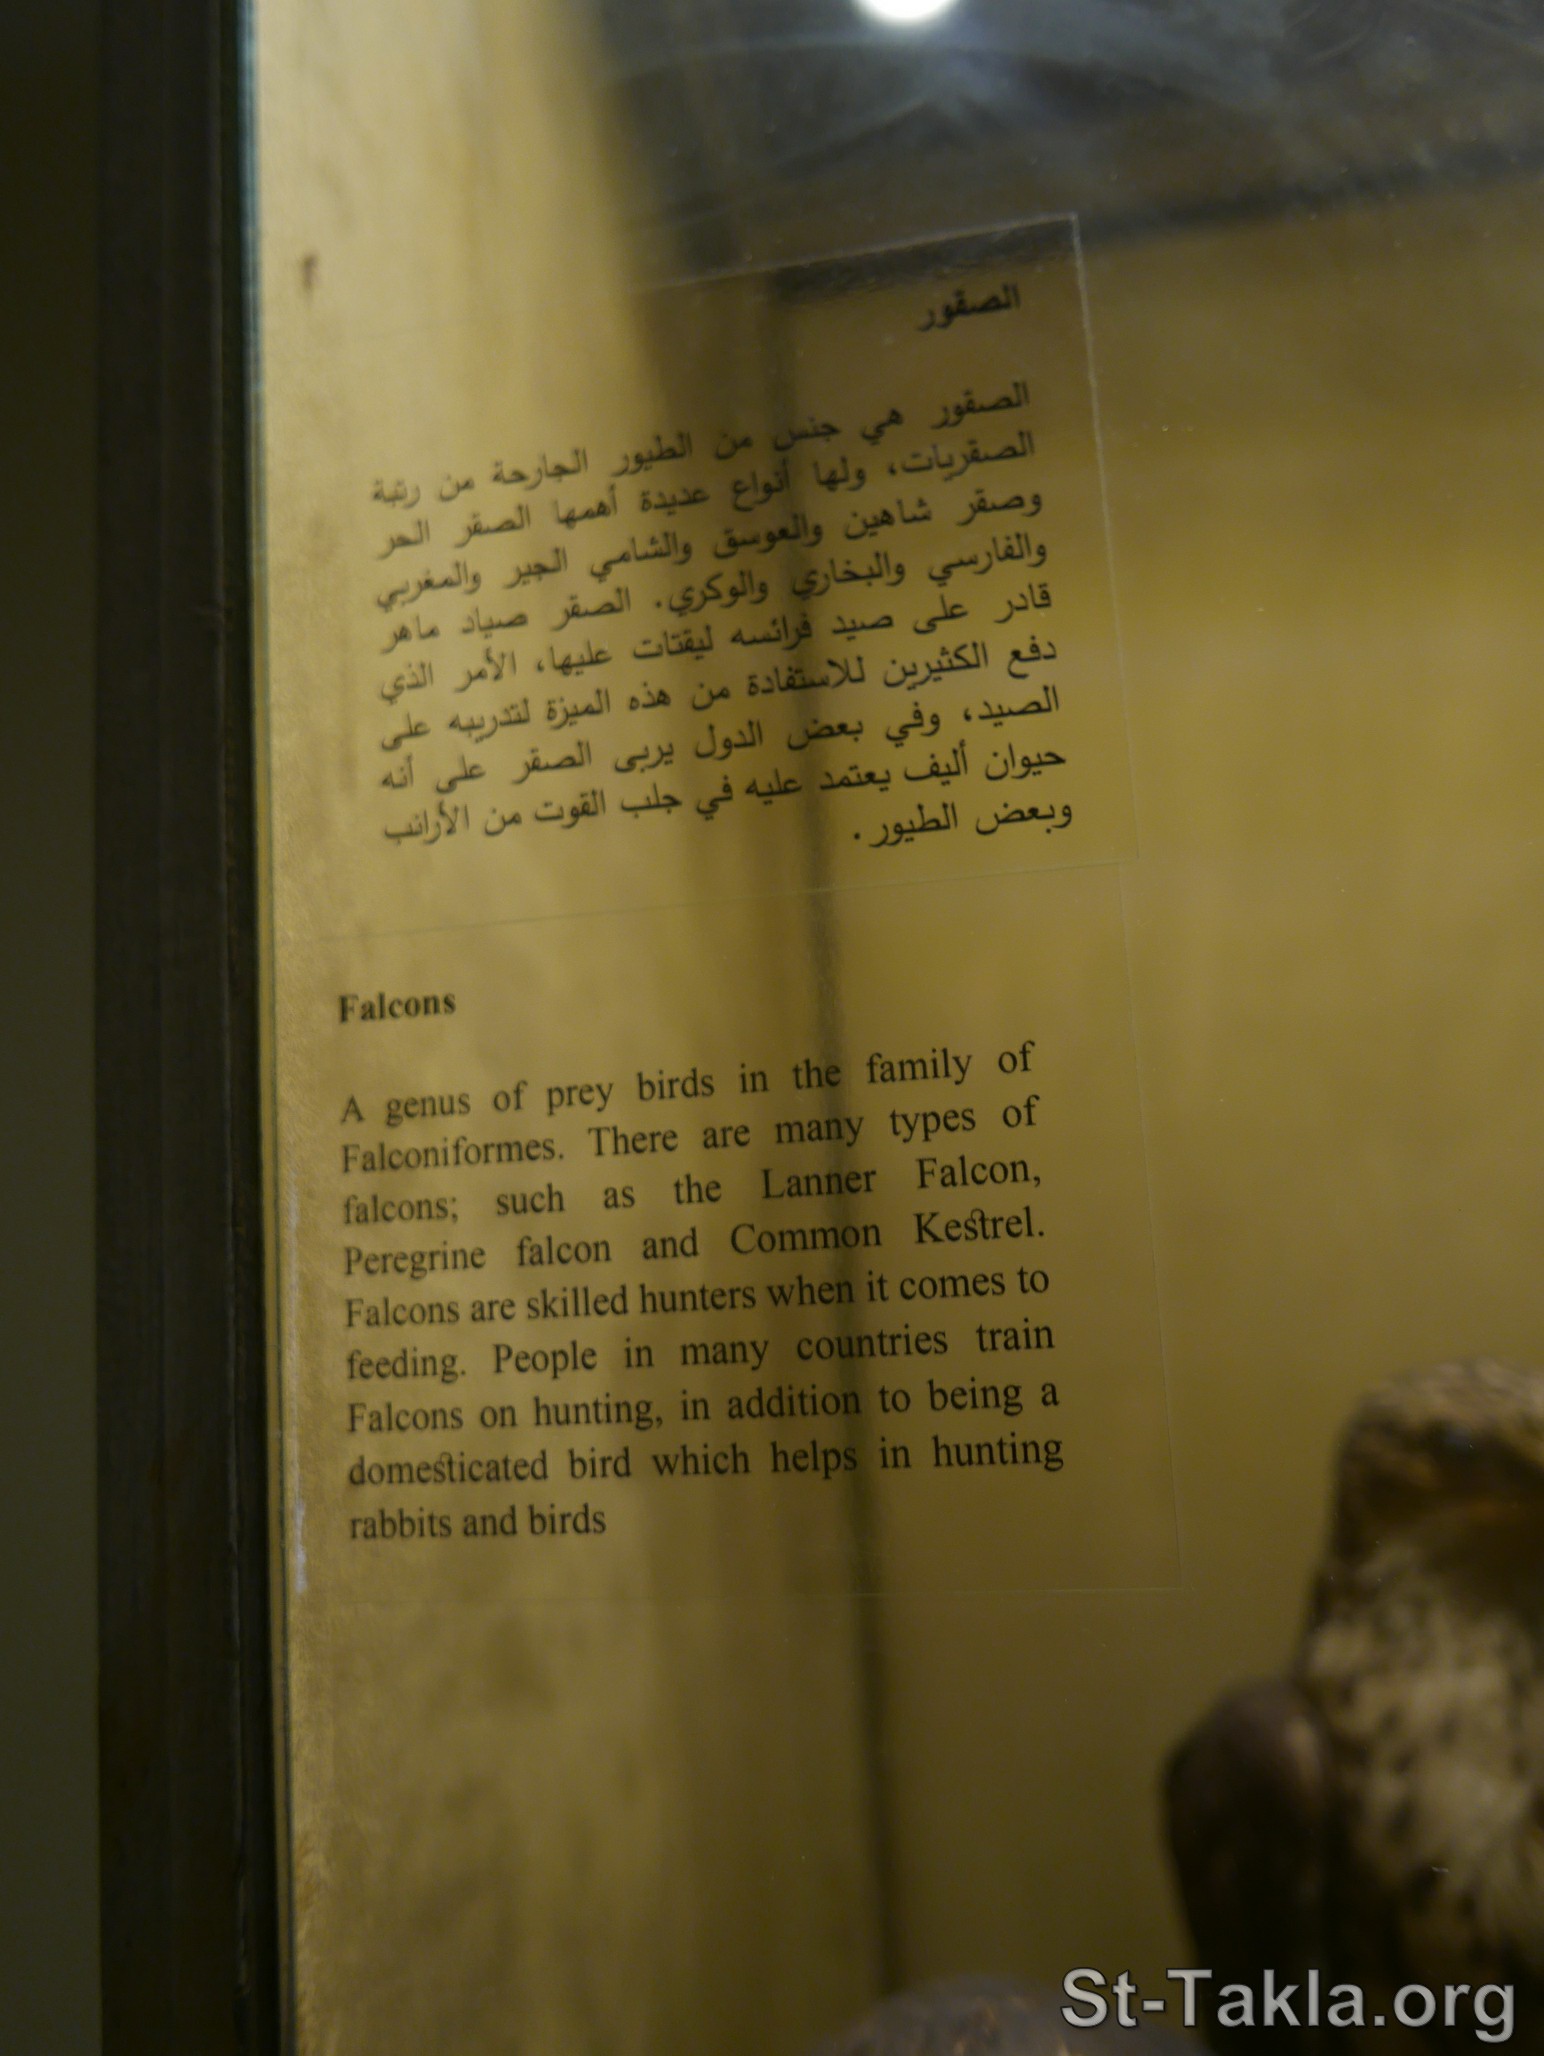 الصقور
الصقور هي جنس من الطيور الجارحة من رتبة
الصقريات، ولها أنواع عديدة أهمها الصقر الحر
وصقر شاهين والعوسق والشامي الجير والمغربي
والفارسي والبخاري والوكري. الصقر صياد ماهر
قادر على صيد فرائسه ليقتات عليها، الأمر الذي
دفع الكثيرين للاستفادة من هذه الميزة لتدريبه على
الصيد، وفي بعض الدول يربى الصقر على أنه
حيوان أليف يعتمد عليه في جلب القوت من الأرانب
وبعض الطيور.
Falcons
A genus of prey birds in the family of
Falconiformes. There are many types of
falcons; such as the Lanner Falcon,
Peregrine falcon and Common Kestrel.
Falcons are skilled hunters when it comes to
feeding. People in many countries train
Falcons on hunting, in addition to being a
domesticated bird which helps in hunting
rabbits and birds
St-Takla.org